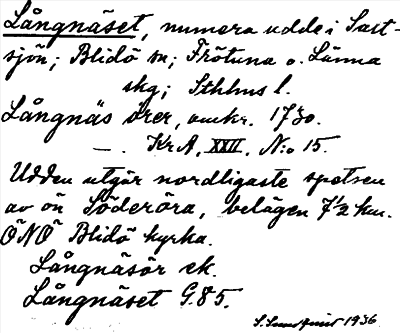 Långnäset, numera udde i Salt-
sjön; Blidö sn; Frötuna o. Länna
skg; Sthlms l.
Långnäs örer, omkr. 1730.
— . Kr A, XXII, N:o 15.
Udden utgör nordligaste spetsen
av ön Söderöra, belägen 7½ km.
ÖNÖ Blidö kyrka.
Långnäsör ek.
Långnäset G.85.
1936